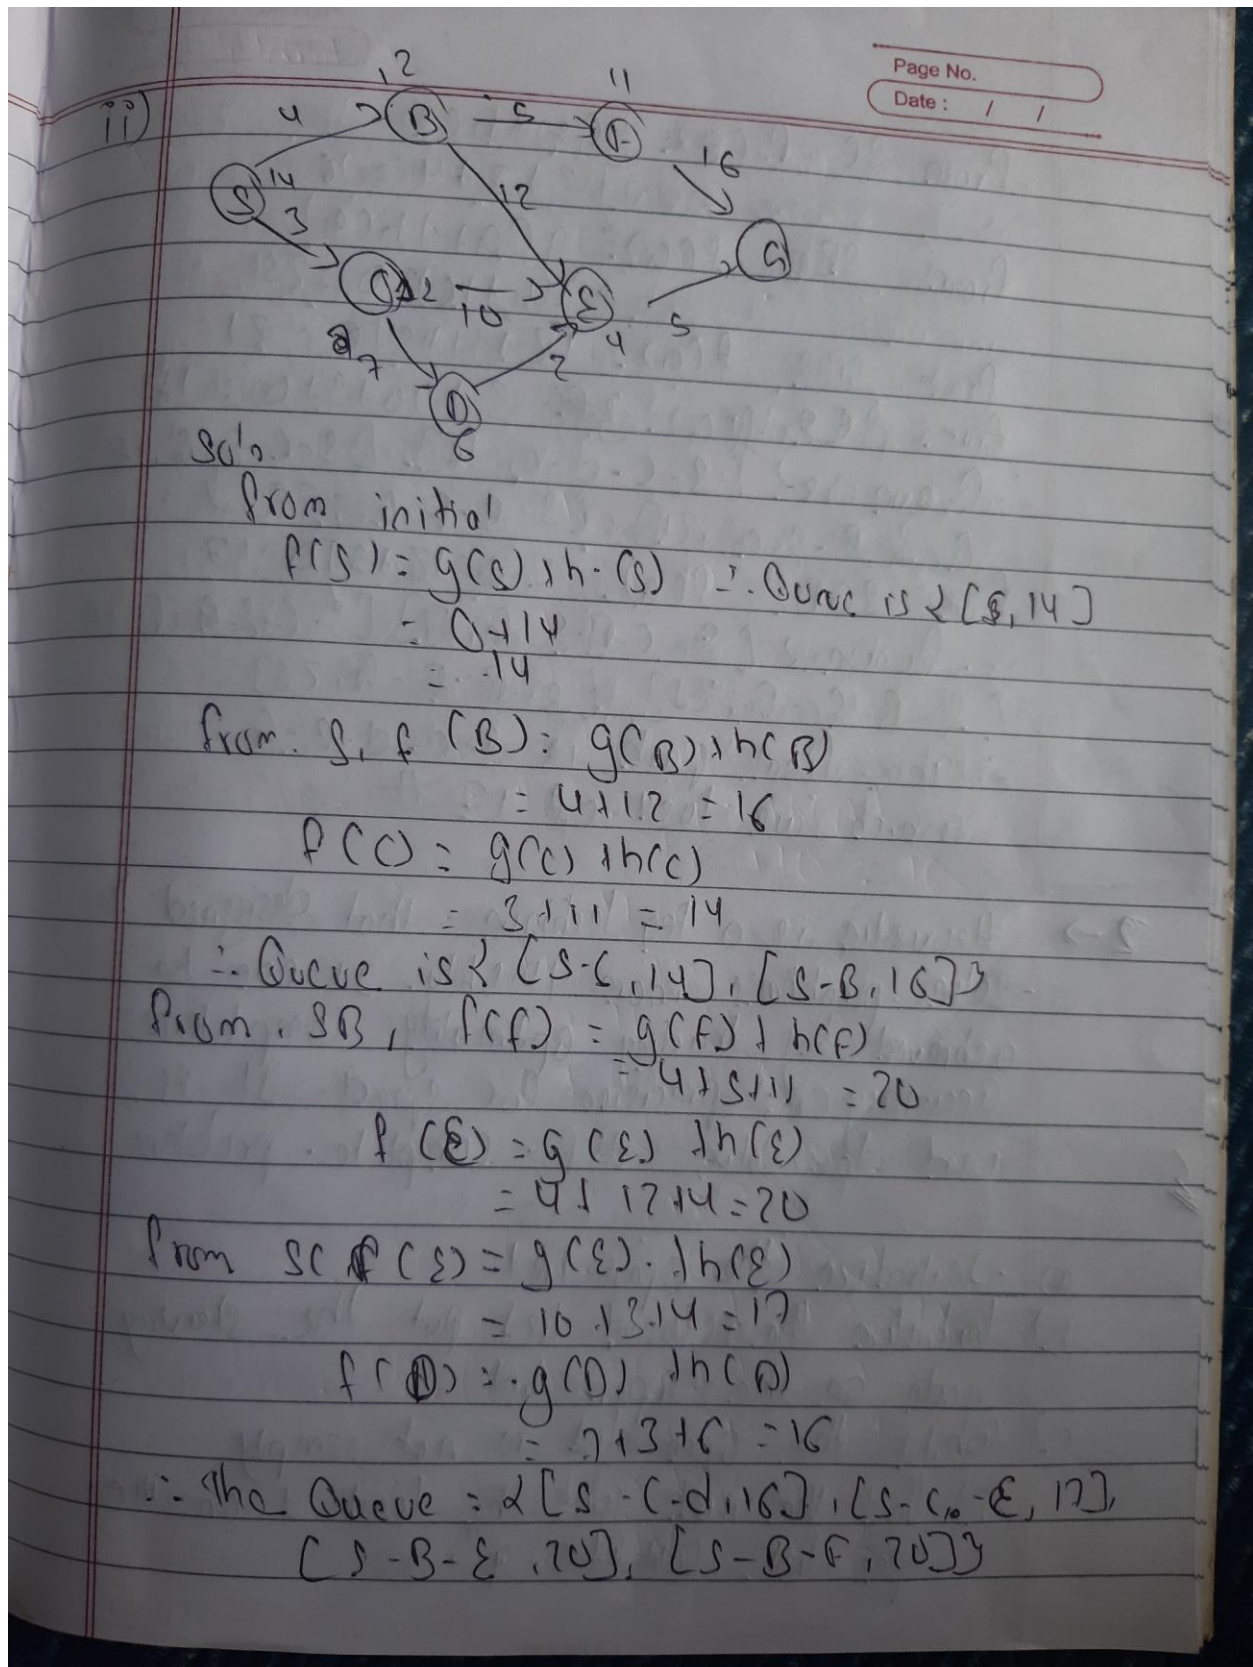 Page No.
Date : / /
ii)
12
11
4
B
5
F
16
S
14
12
3
G
C
10
E
5
4
7
2
D
6
Sol'n
from initial
f(S) = g(S) + h·(S) ∴ Queue is {[S, 14]
= 0+14
= 14
from. S, f (B) = g(B) + h(B)
= 4+12 = 16
f(C) = g(C) + h(C)
= 3+11 = 14
∴ Queue is { [S-C, 14], [S-B, 16]}
From. SB, f(f) = g(F) + h(F)
= 4+5+11 = 20
f (E) = g (E) + h(E)
= 4+ 12+4=20
from SC f(E) = g(E). + h(E)
= 10+3+4=17
f(D) = .g(D) + h(D)
= 7+3+6 = 16
∴ The Queue = {[S-C-d, 16], [S-C-E, 17],
[S-B-E, 20], [S-B-F, 20]}